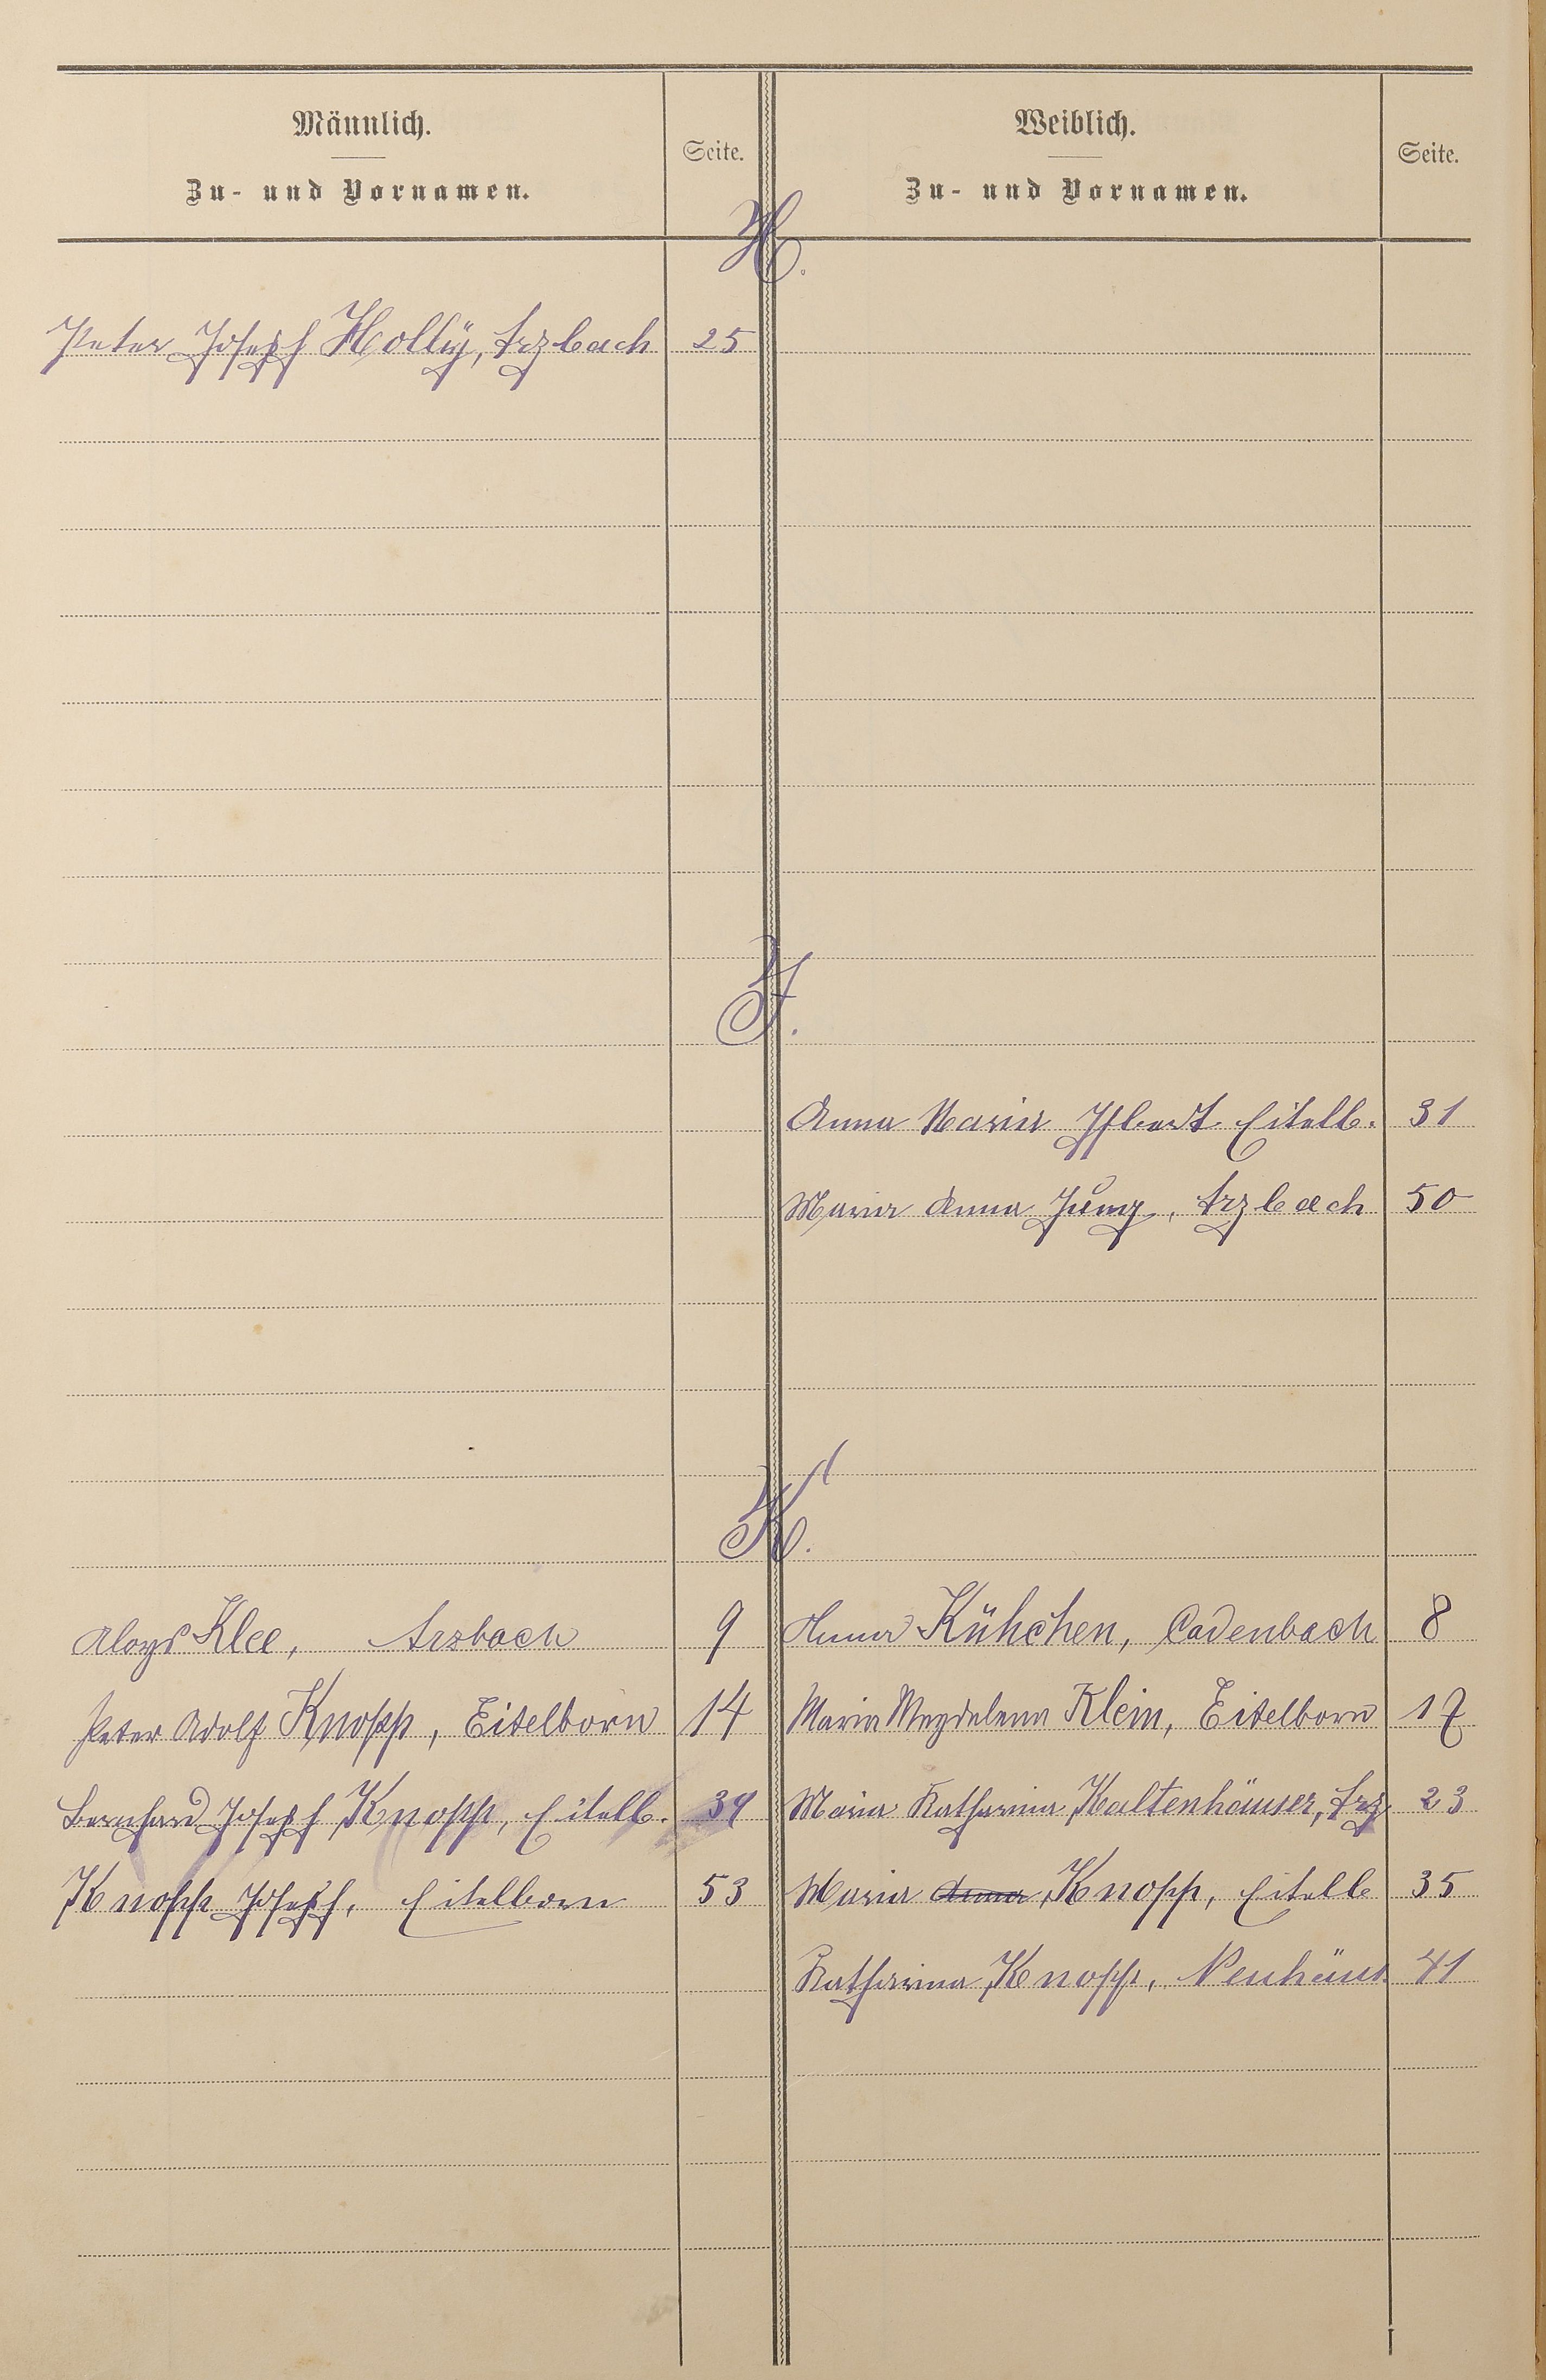 Männlich.
Zu- und Vornamen.
Seite.
Weiblich.
Zu- und Vornamen.
Seite.
H.
Peter Joseph Holly, Arzbach 25
J.
Anna Maria Ifland Eitelb. 31
Maria Anna Jung, Arzbach 50
K.
Aloys Klee, Arzbach 9 Anna Kühchen, Cadenbach 8
Peter Adolf Knopp, Eitelborn 14 Maria Magdalena Klein, Eitelborn 17
Bernhard Joseph Knopp, Eitelb. 39 Maria Katharina Kaltenhäuser, Arz 23
Knopp Joseph, Eitelborn 53 Maria Anna Knopp, Eitelb 35
Katharina Knopp, Neuhäus 41